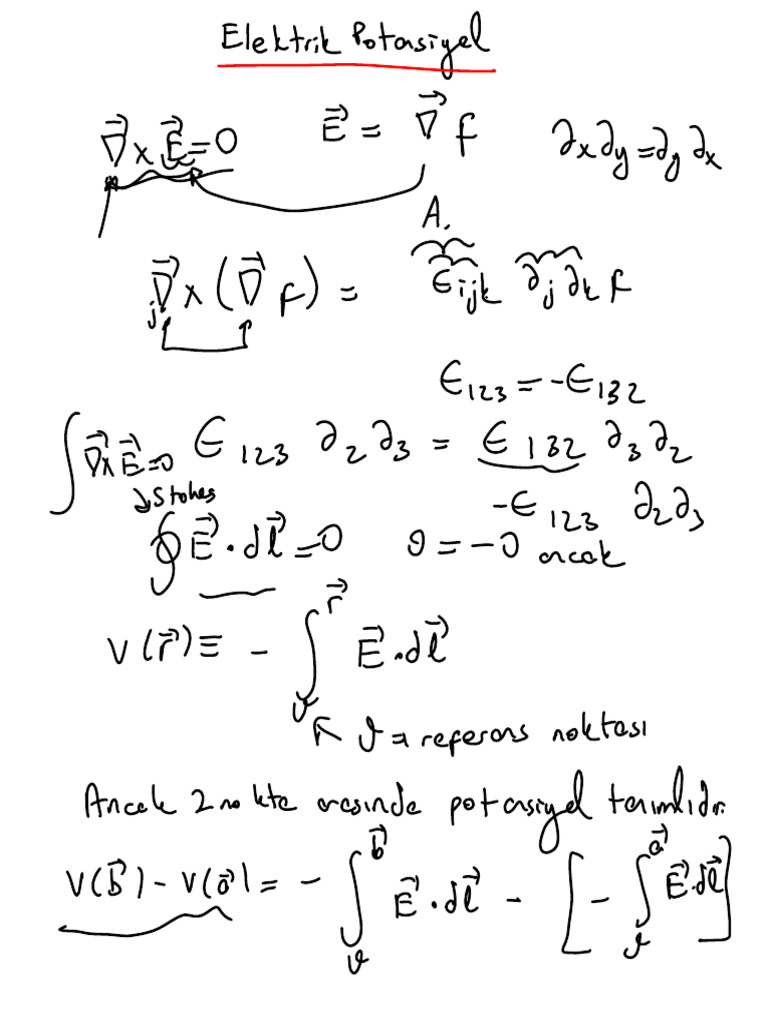 Elektrik Potasiyel
∇⃗ x E⃗ = 0 E⃗ = ∇⃗ f ∂x∂y = ∂y∂x
A.
j ∇⃗ x (∇⃗ f) = ϵijk ∂j ∂k f
ϵ123 = -ϵ132
∫ ∇⃗x E⃗ = 0 ϵ123 ∂2 ∂3 = ϵ132 ∂3 ∂2
↓ Stokes -ϵ123 ∂2∂3
∮ E⃗ · dl⃗ = 0 0 = -0 ancak
V(r⃗) ≡ - ∫ϑ^r⃗ E⃗ · dl⃗
↖ ϑ = referans noktası
Ancak 2 nokta arasında potansiyel tanımlıdır.
V(b⃗) - V(a⃗) = - ∫ϑ^b⃗ E⃗ · dl⃗ - [- ∫ϑ^a⃗ E⃗·dl⃗]